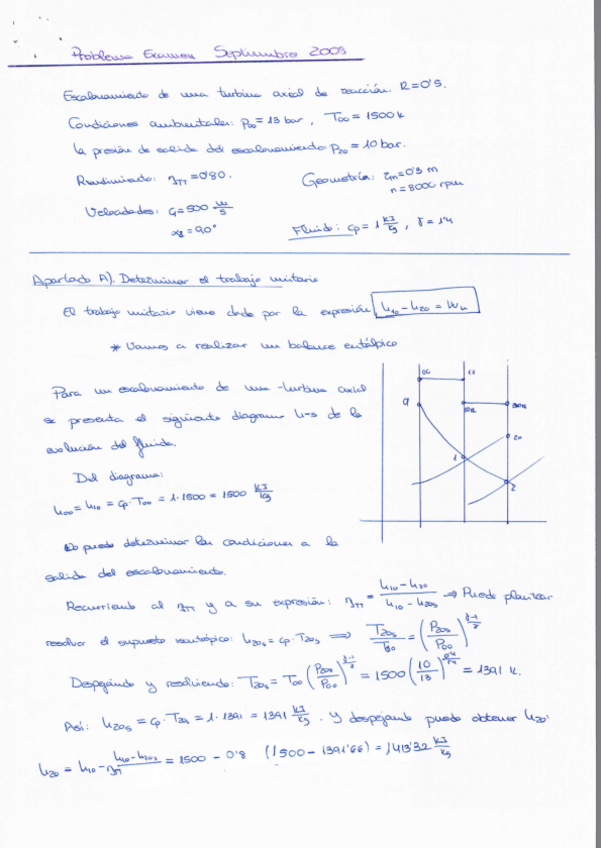 Problema Examen Septiembre 2009
Escalonamiento de una turbina axial de reacción. R=0'5.
Condiciones ambientales: p₀₀ = 13 bar, T₀₀ = 1500 K
La presión de salida del escalonamiento p₂₀ = 10 bar.
Rendimiento: η_TT = 0'80. Geometría: r_m = 0'3 m
n = 8000 rpm
Velocidades: C₁ = 500 m/s
α₂ = 90° Fluido: cp = 1 kJ/kg, γ = 1'4
Apartado A). Determinar el trabajo unitario
El trabajo unitario viene dado por la expresión h₁₀ - h₂₀ = Wu
* Vamos a realizar un balance entálpico
Para un escalonamiento de una turbina axial
se presenta el siguiente diagrama h-s de la
evolución del fluido.
Del diagrama:
h₀₀ = h₁₀ = cp · T₀₀ = 1 · 1500 = 1500 kJ/kg
00 10
10R 20R
20
1
2
No puedo determinar las condiciones a la
salida del escalonamiento.
Recurriendo al η_TT y a su expresión: η_TT = (h₁₀ - h₂₀)/(h₁₀ - h₂₀s) ⇒ Puedo plantear
resolver el supuesto isentrópico: h₂₀s = cp · T₂₀s ⇒ T₂₀s/T₀₀ = (P₂₀s/P₀₀)^((γ-1)/γ)
Despejando y resolviendo: T₂₀s = T₀₀ (P₂₀s/P₀₀)^((γ-1)/γ) = 1500 (10/13)^(0'4/1'4) = 1391 K.
Así: h₂₀s = cp · T₂₀s = 1 · 1391 = 1391 kJ/kg. Y despejando puedo obtener h₂₀:
h₂₀ = h₁₀ - η_TT (h₁₀ - h₂₀s) = 1500 - 0'8 (1500 - 1391'66) = 1413'32 kJ/kg